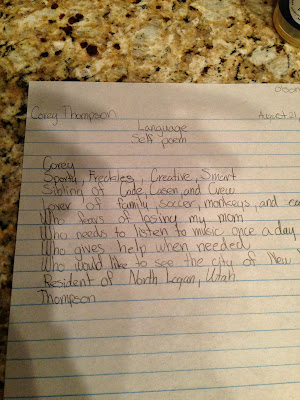 olson
Corey Thompson August 21,
Language
Self poem
Corey
Sporty, Freckeless, Creative, Smart
Sibling of Cade, Casen, and Crew
Lover of family, soccer, monkeys, and
Who fears of losing my mom
Who needs to listen to music once a day
Who gives help when needed
Who would like to see the city of New
Resident of North Logan, Utah
Thompson